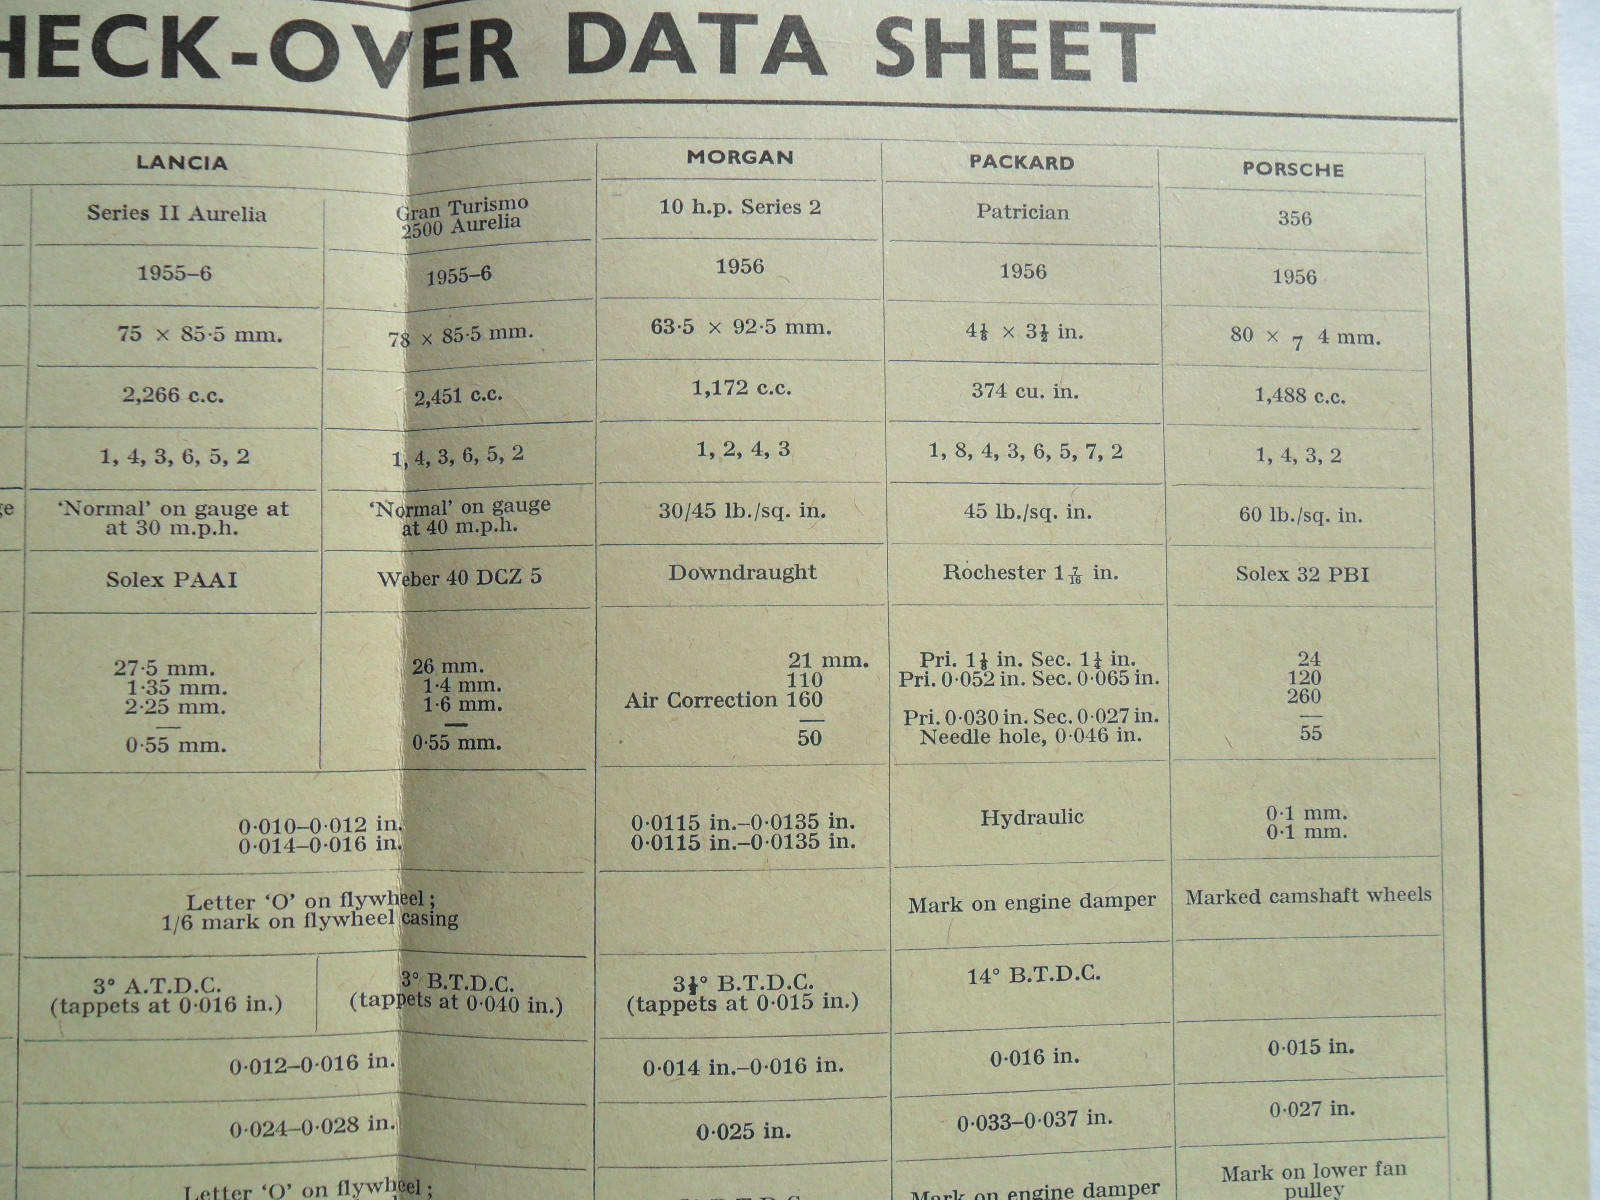 HECK-OVER DATA SHEET
LANCIA MORGAN PACKARD PORSCHE
Series II Aurelia Gran Turismo 2500 Aurelia 10 h.p. Series 2 Patrician 356
1955–6 1955–6 1956 1956 1956
75 × 85·5 mm. 78 × 85·5 mm. 63·5 × 92·5 mm. 4⅛ × 3½ in. 80 × 7 4 mm.
2,266 c.c. 2,451 c.c. 1,172 c.c. 374 cu. in. 1,488 c.c.
1, 4, 3, 6, 5, 2 1, 4, 3, 6, 5, 2 1, 2, 4, 3 1, 8, 4, 3, 6, 5, 7, 2 1, 4, 3, 2
ge 'Normal' on gauge at 'Normal' on gauge 30/45 lb./sq. in. 45 lb./sq. in. 60 lb./sq. in.
at 30 m.p.h. at 40 m.p.h.
Solex PAAI Weber 40 DCZ 5 Downdraught Rochester 1 7/16 in. Solex 32 PBI
27·5 mm. 26 mm. 21 mm. Pri. 1⅛ in. Sec. 1¼ in. 24
1·35 mm. 1·4 mm. 110 Pri. 0·052 in. Sec. 0·065 in. 120
2·25 mm. 1·6 mm. Air Correction 160 260
— — — Pri. 0·030 in. Sec. 0·027 in. —
0·55 mm. 0·55 mm. 50 Needle hole, 0·046 in. 55
0·010–0·012 in. 0·0115 in.–0·0135 in. Hydraulic 0·1 mm.
0·014–0·016 in. 0·0115 in.–0·0135 in. 0·1 mm.
Letter 'O' on flywheel; Mark on engine damper Marked camshaft wheels
1/6 mark on flywheel casing
3° A.T.D.C. 3° B.T.D.C. 3½° B.T.D.C. 14° B.T.D.C.
(tappets at 0·016 in.) (tappets at 0·040 in.) (tappets at 0·015 in.)
0·012–0·016 in. 0·014 in.–0·016 in. 0·016 in. 0·015 in.
0·024–0·028 in. 0·025 in. 0·033–0·037 in. 0·027 in.
Letter 'O' on flywheel; Mark on engine damper Mark on lower fan
pulley